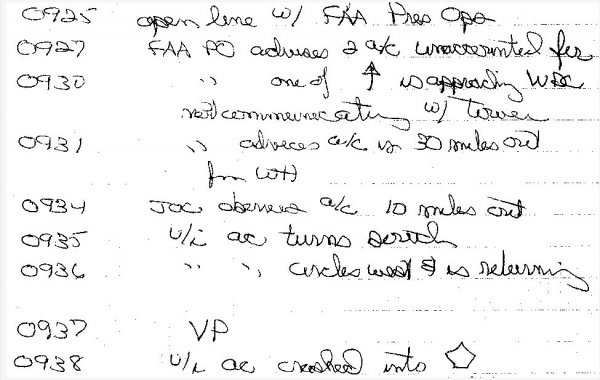 0925 open line w/ FAA Pres Ops
0927 FAA PO advises 2 a/c unaccounted for
0930 " one of ↑ is approaching WDC
not communicating w/ Tower
0931 " advises a/c is 30 miles out
from WH
0934 JOC observes a/c 10 miles out
0935 u/i ac turns south
0936 " " circles west & is returning
0937 VP
0938 u/i ac crashed into ⬠